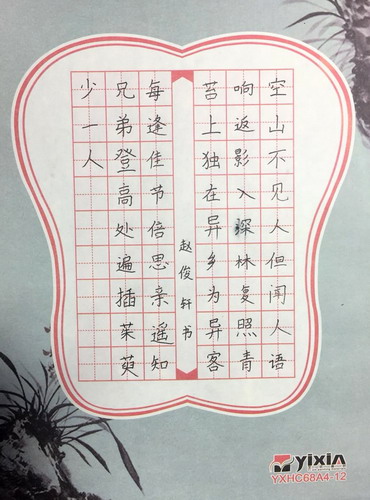 空山不见人但闻人语
响返影入深林复照青
苔上独在异乡为异客
赵俊轩书
每逢佳节倍思亲遥知
兄弟登高处遍插茱萸
少一人
yixin
YXHC68A4-12